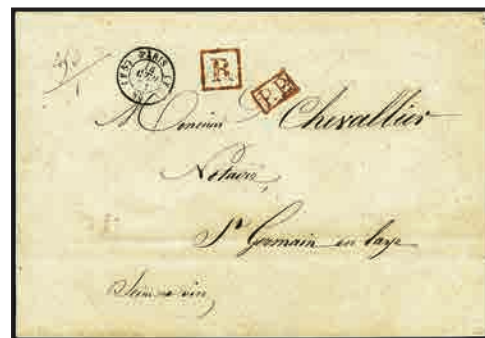 PARIS
R
P.P.
Monsieur Chevallier
Notaire,
St Germain en Laye